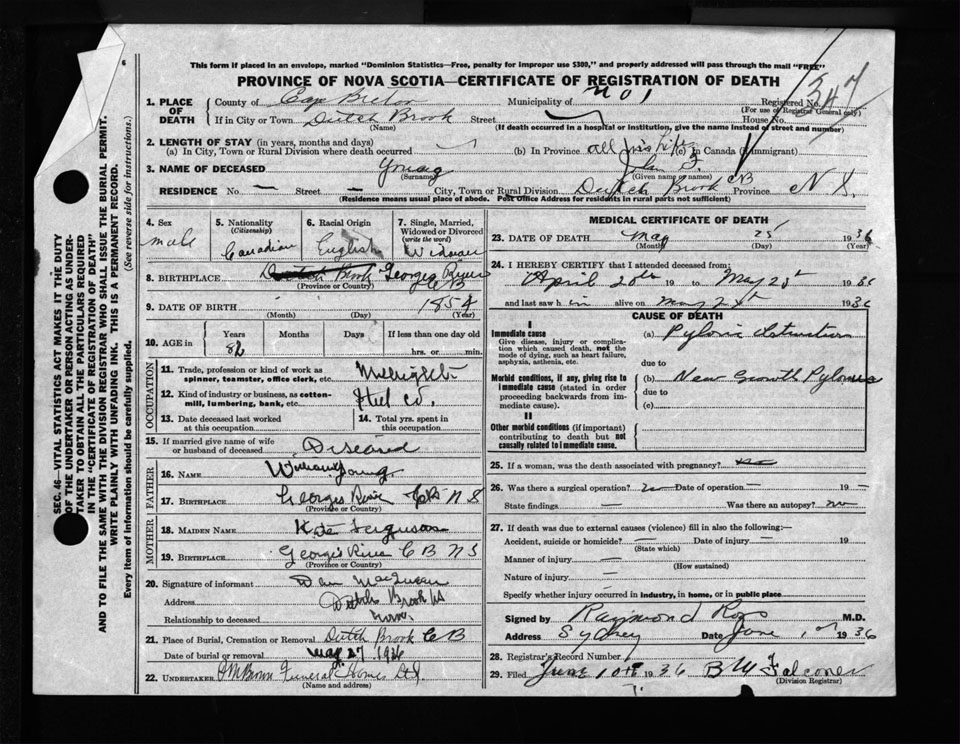 6
This form if placed in an envelope, marked "Dominion Statistics—Free, penalty for improper use $300," and properly addressed will pass through the mail "FREE"
PROVINCE OF NOVA SCOTIA—CERTIFICATE OF REGISTRATION OF DEATH
347
1. PLACE OF DEATH
County of Cape Breton Municipality of No 1 Registered No.
(For use of Registrar General only)
If in City or Town Dutch Brook Street House No.
(Name) (If death occurred in a hospital or institution, give the name instead of street and number)
2. LENGTH OF STAY (in years, months and days)
(a) In City, Town or Rural Division where death occurred (b) In Province all his life (c) in Canada (if immigrant)
3. NAME OF DECEASED Young John F.
(Surname) (Given name or names)
RESIDENCE No — Street — City, Town or Rural Division Dutch Brook CB Province N S.
(Residence means usual place of abode. Post Office Address for residents in rural parts not sufficient)
4. Sex male
5. Nationality (Citizenship) Canadian
6. Racial Origin English
7. Single, Married, Widowed or Divorced (write the word)
8. BIRTHPLACE Dutch Brook Georges River CB
(Province or Country)
9. DATE OF BIRTH 1854
(Month) (Day) (Year)
10. AGE in Years Months Days If less than one day old
82 hrs. or min.
OCCUPATION
11. Trade, profession or kind of work as spinner, teamster, office clerk, etc. Millwright
12. Kind of industry or business, as cotton-mill, lumbering, bank, etc. Steel Co.
13. Date deceased last worked at this occupation
14. Total yrs. spent in this occupation
15. If married give name of wife or husband of deceased Diseased
FATHER
16. NAME William Young
17. BIRTHPLACE Georges River CB N S
(Province or Country)
MOTHER
18. MAIDEN NAME Kate Ferguson
19. BIRTHPLACE Georges River C B N S
(Province or Country)
20. Signature of informant Dan MacQueen
Address Dutch Brook NS
Relationship to deceased
21. Place of Burial, Cremation or Removal Dutch Brook C B
Date of burial or removal May 27 1936
22. UNDERTAKER Funeral Homes Ltd.
(Name and address)
MEDICAL CERTIFICATE OF DEATH
23. DATE OF DEATH May 25 1936
(Month) (Day) (Year)
24. I HEREBY CERTIFY that I attended deceased from:
April 20th 19 to May 25th 1936
and last saw h im alive on May 1936
CAUSE OF DEATH
I
Immediate cause
Give disease, injury or complication which caused death, not the mode of dying, such as heart failure, asphyxia, asthenia, etc.
(a) Pyloric obstruction
due to
Morbid conditions, if any, giving rise to immediate cause (stated in order proceeding backwards from immediate cause).
(b) New Growth Pylorus
due to
(c)
II
Other morbid conditions (if important) contributing to death but not causally related to immediate cause.
25. If a woman, was the death associated with pregnancy? no
26. Was there a surgical operation? no Date of operation — 19 —
State findings — Was there an autopsy? no
27. If death was due to external causes (violence) fill in also the following:—
Accident, suicide or homicide? — Date of injury — 19
(State which)
Manner of injury —
(How sustained)
Nature of injury —
Specify whether injury occurred in industry, in home, or in public place
Signed by Raymond Ross M.D.
Address Sydney Date June 1st 1936
28. Registrar's Record Number
29. Filed June 10th 1936 B W Falconer
(Division Registrar)
SEC. 46—VITAL STATISTICS ACT MAKES IT THE DUTY
OF THE UNDERTAKER OR PERSON ACTING AS UNDERTAKER TO OBTAIN ALL THE PARTICULARS REQUIRED
IN THE "CERTIFICATE OF REGISTRATION OF DEATH"
AND TO FILE THE SAME WITH THE DIVISION REGISTRAR WHO SHALL ISSUE THE BURIAL PERMIT.
WRITE PLAINLY WITH UNFADING INK. THIS IS A PERMANENT RECORD.
Every item of Information should be carefully supplied. (See reverse side for instructions.)